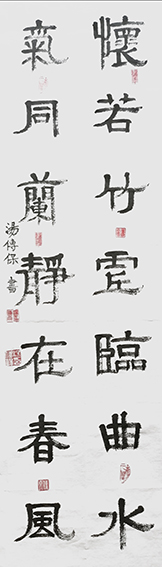 懷若竹虛臨曲水
氣同蘭靜在春風
湯傳保書